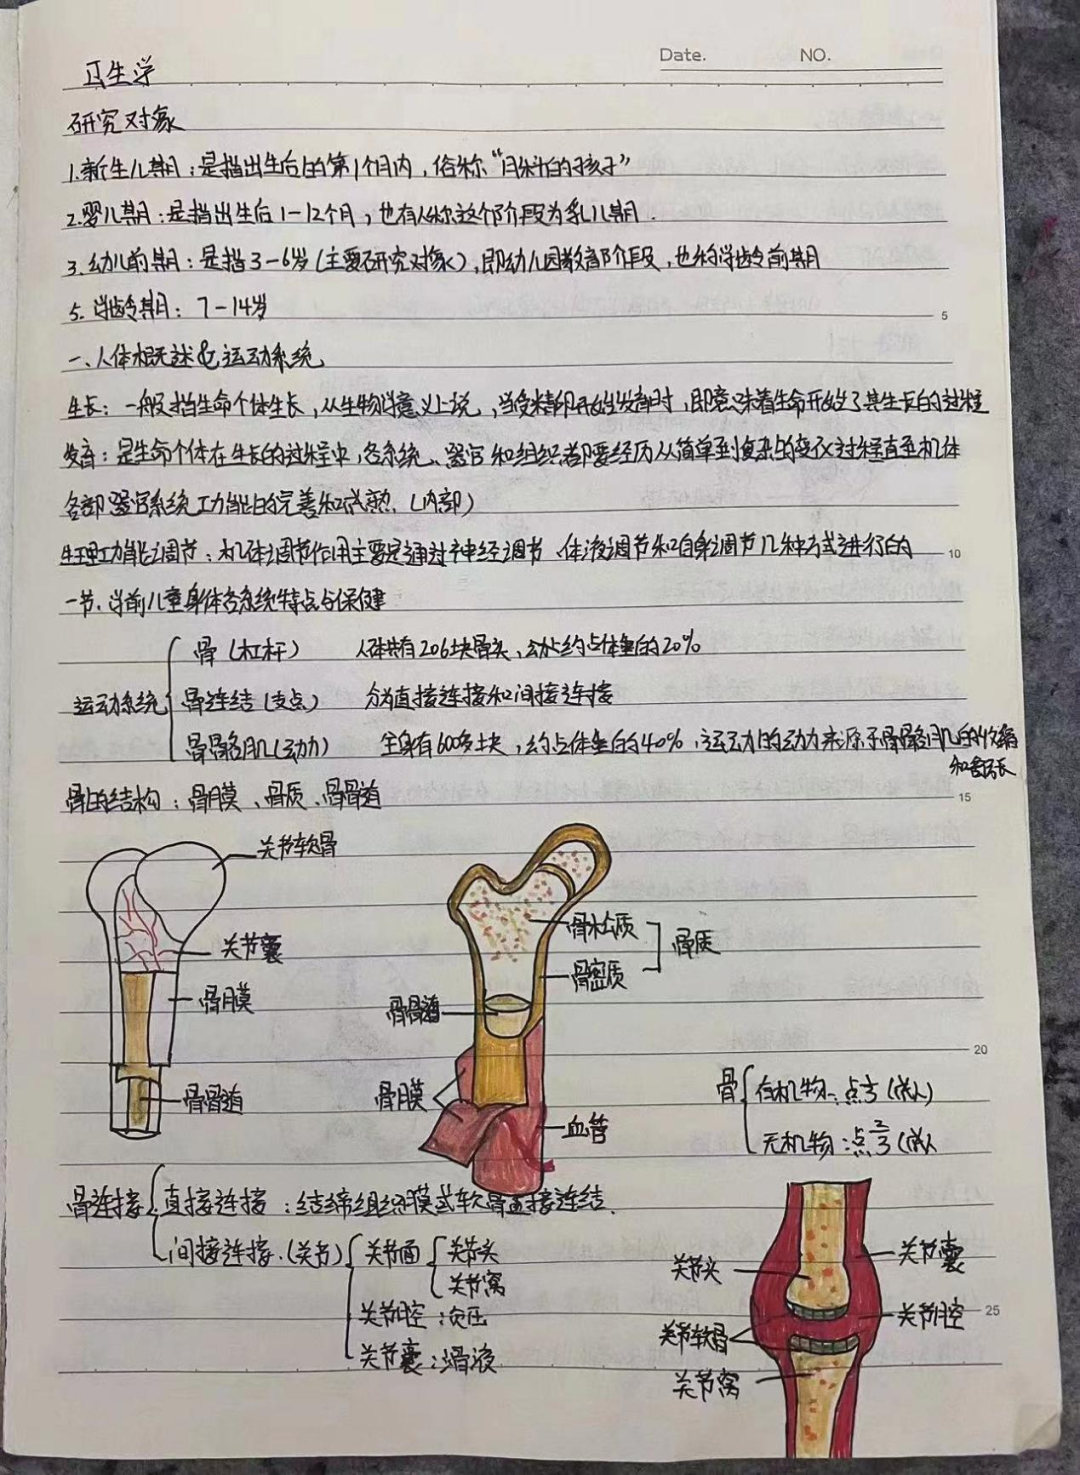 Date. NO.
卫生学
研究对象
1.新生儿期：是指出生后的第1个月内，俗称“月科的孩子”
2.婴儿期：是指出生后1-12个月，也有人称这个阶段为乳儿期.
3.幼儿前期：是指3-6岁(主要研究对象)，即幼儿园教育阶段，也称学龄前期
5.学龄期：7-14岁
5
一、人体概述&运动系统
生长：一般指生命个体生长，从生物学意义上说，当受精卵开始发育时，即意味着生命开始了其生长的过程
发育：是生命个体在生长的过程中，各系统、器官和组织都要经历从简单到复杂的变化过程直至机体
各部器官系统功能的完善和成熟.(内部)
生理功能调节：机体调节作用主要是通过神经调节、体液调节和自身调节几种方式进行的
10
一节.学前儿童身体各系统特点与保健
运动系统
骨(杠杆) 人体共有206块骨头，幼儿约占体重的20%
骨连结(支点) 分为直接连接和间接连接
骨骼肌(动力) 全身有600多块，约占体重的40%，运动的动力来源于骨骼肌的收缩
和舒长
骨的结构：骨膜、骨质、骨髓
15
关节软骨
关节囊
骨膜
骨骨道
骨松质
骨密质
骨质
骨骨道
骨膜
血管
20
骨
有机物：点1/3(成人)
无机物：点2/3(成人
骨连接
直接连接：结缔组织膜或软骨直接连结.
间接连接.(关节)
关节面
关节头
关节窝
关节腔：负压
关节囊：滑液
关节头
关节软骨
关节窝
关节囊
关节腔
25